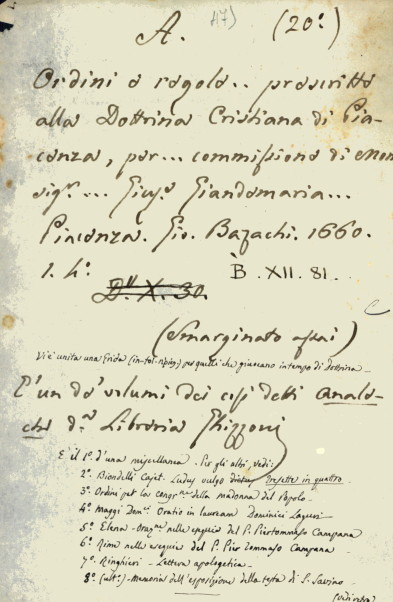 A. 47) (20º)
Ordini e regole... prescritte
alla Dottrina Cristiana di Pia-
cenza, per... commissione di Mon
sigr. ... Gius.e Giandomaria...
Piacenza. Gio. Bazachi. 1660.
1. 4º. B. XII. 81.
D.II X. 30.
(Smarginato assai)
Vi è unita una Grida (in-fol. ) per quelli che giuocano in tempo di dottrina -
È un de' volumi dei così detti Analo-
chi d.a Libreria Ghizzoni
È il 1º d'una miscellanea. Per gli altri, vedi:
2º. Biondelli Cajet. Ludus vulgo dictus Tresette in quattro.
3º. Ordini per la congr.ne della madonna del Popolo.
4º. Maggi Dom.c Oratio in lauream Dominici
5º. Elena - Oraz.ne nelle esequie del P. Piertommaso Campana
6º. Rime nelle esequie del P. Pier Tommaso Campana.
7º. Ringhieri - Lettera apologetica.
8º. (ult.o) - Memoria dell'esposizione della testa di S. Savino.
(Vedi retro)